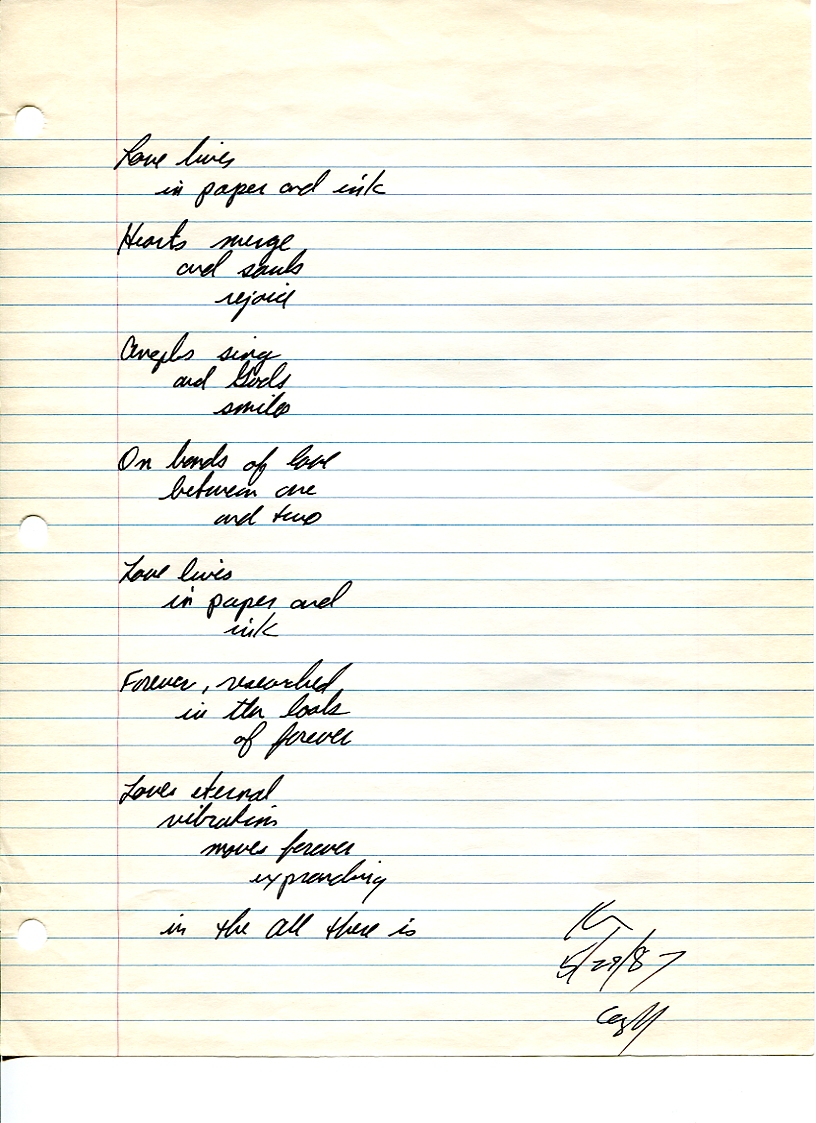 Love lives
in paper and ink
Hearts merge
and souls
rejoice
Angels sing
and Gods
smile
On bonds of love
between one
and two
Love lives
in paper and
ink
Forever, recorded
in the books
of forever
Loves eternal
vibration
moves forever
expanding
in the All there is
5/29/87